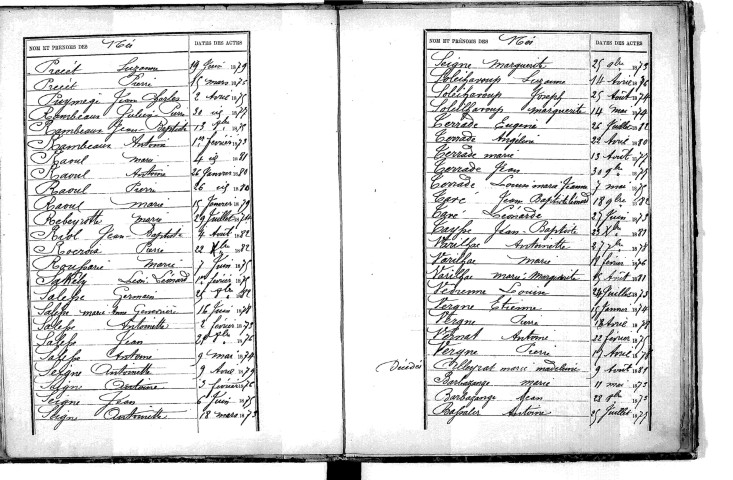 NOM ET PRÉNOMS DES Nés DATES DES ACTES
Precet Suzanne 19 Juin 1879
Precet Pierre 15 mars 1876
Puymege Jean Charles 2 Avril 1875
Rambeaux Julien
Rambeaux Jean Baptiste 13 1875
Rambeaux Antoine 1er février 1873
Raoul Marie 4 1881
Raoul Antoine 26 Janvier 1880
Raoul Pierre 26 1880
Raoul Marie 15 Janvier 1879
Rebeyrotte Marie 29 Juillet 1874
Ribl Jean Baptiste 4 Août 1882
Rocroix Pierre 22 Xbre 1882
Rouffarie Marie 7 Juin 1875
Léon Léonard 1er février 1875
Salesse Germain 1882
Salesse marie Anne Geneviève 16 Juin 1878
Salesse Antoinette 2 février 1873
Salesse Jean 1876
Salesse Antoine 9 mai 1874
Seigne Antoinette 9 Avril 1879
Seign Antoine 3 février 1876
Seigne Jean 6 Juin 1875
Seign Antoinette 18 mars 1873
NOM ET PRÉNOMS DES Nés DATES DES ACTES
Seigne Marguerite 25 8bre 1873
Soleihavoup Suzanne 14 Avril 1876
Soleihavoup Joseph 25 Août 1874
Soleilhavoup Marguerite 14 mai 1879
Terrade Eugénie 26 Juillet 1882
Terrade Angéline 22 Avril 1880
Terrade marie 13 Août 1875
Terrade Jean 30 9bre 1875
Terrade Louise marie Jeanne 7 mai 1875
Jean Baptiste Léonard 18 9bre 1882
Léonarde 27 Juin 1873
Jean-Baptiste 23 Xbre 1881
Varilhac Antoinette 27 7bre 1878
Varilhac Marie 18 février 1876
Varilhac marie Marguerite 15 Août 1881
Vedrenne Louise 24 Juillet 1873
Vergne Etienne 15 Janvier 1874
Vergne Pierre 18 Avril 1879
Vernat Antoine 22 février 1875
Vergne Pierre 19 Avril 1878
Décédés Alleyrat marie madeleine 9 Août 1881
Barbazange marie 11 mai 1873
Barbazange Jean 28 8bre 1873
Antoine 25 Juillet 1875